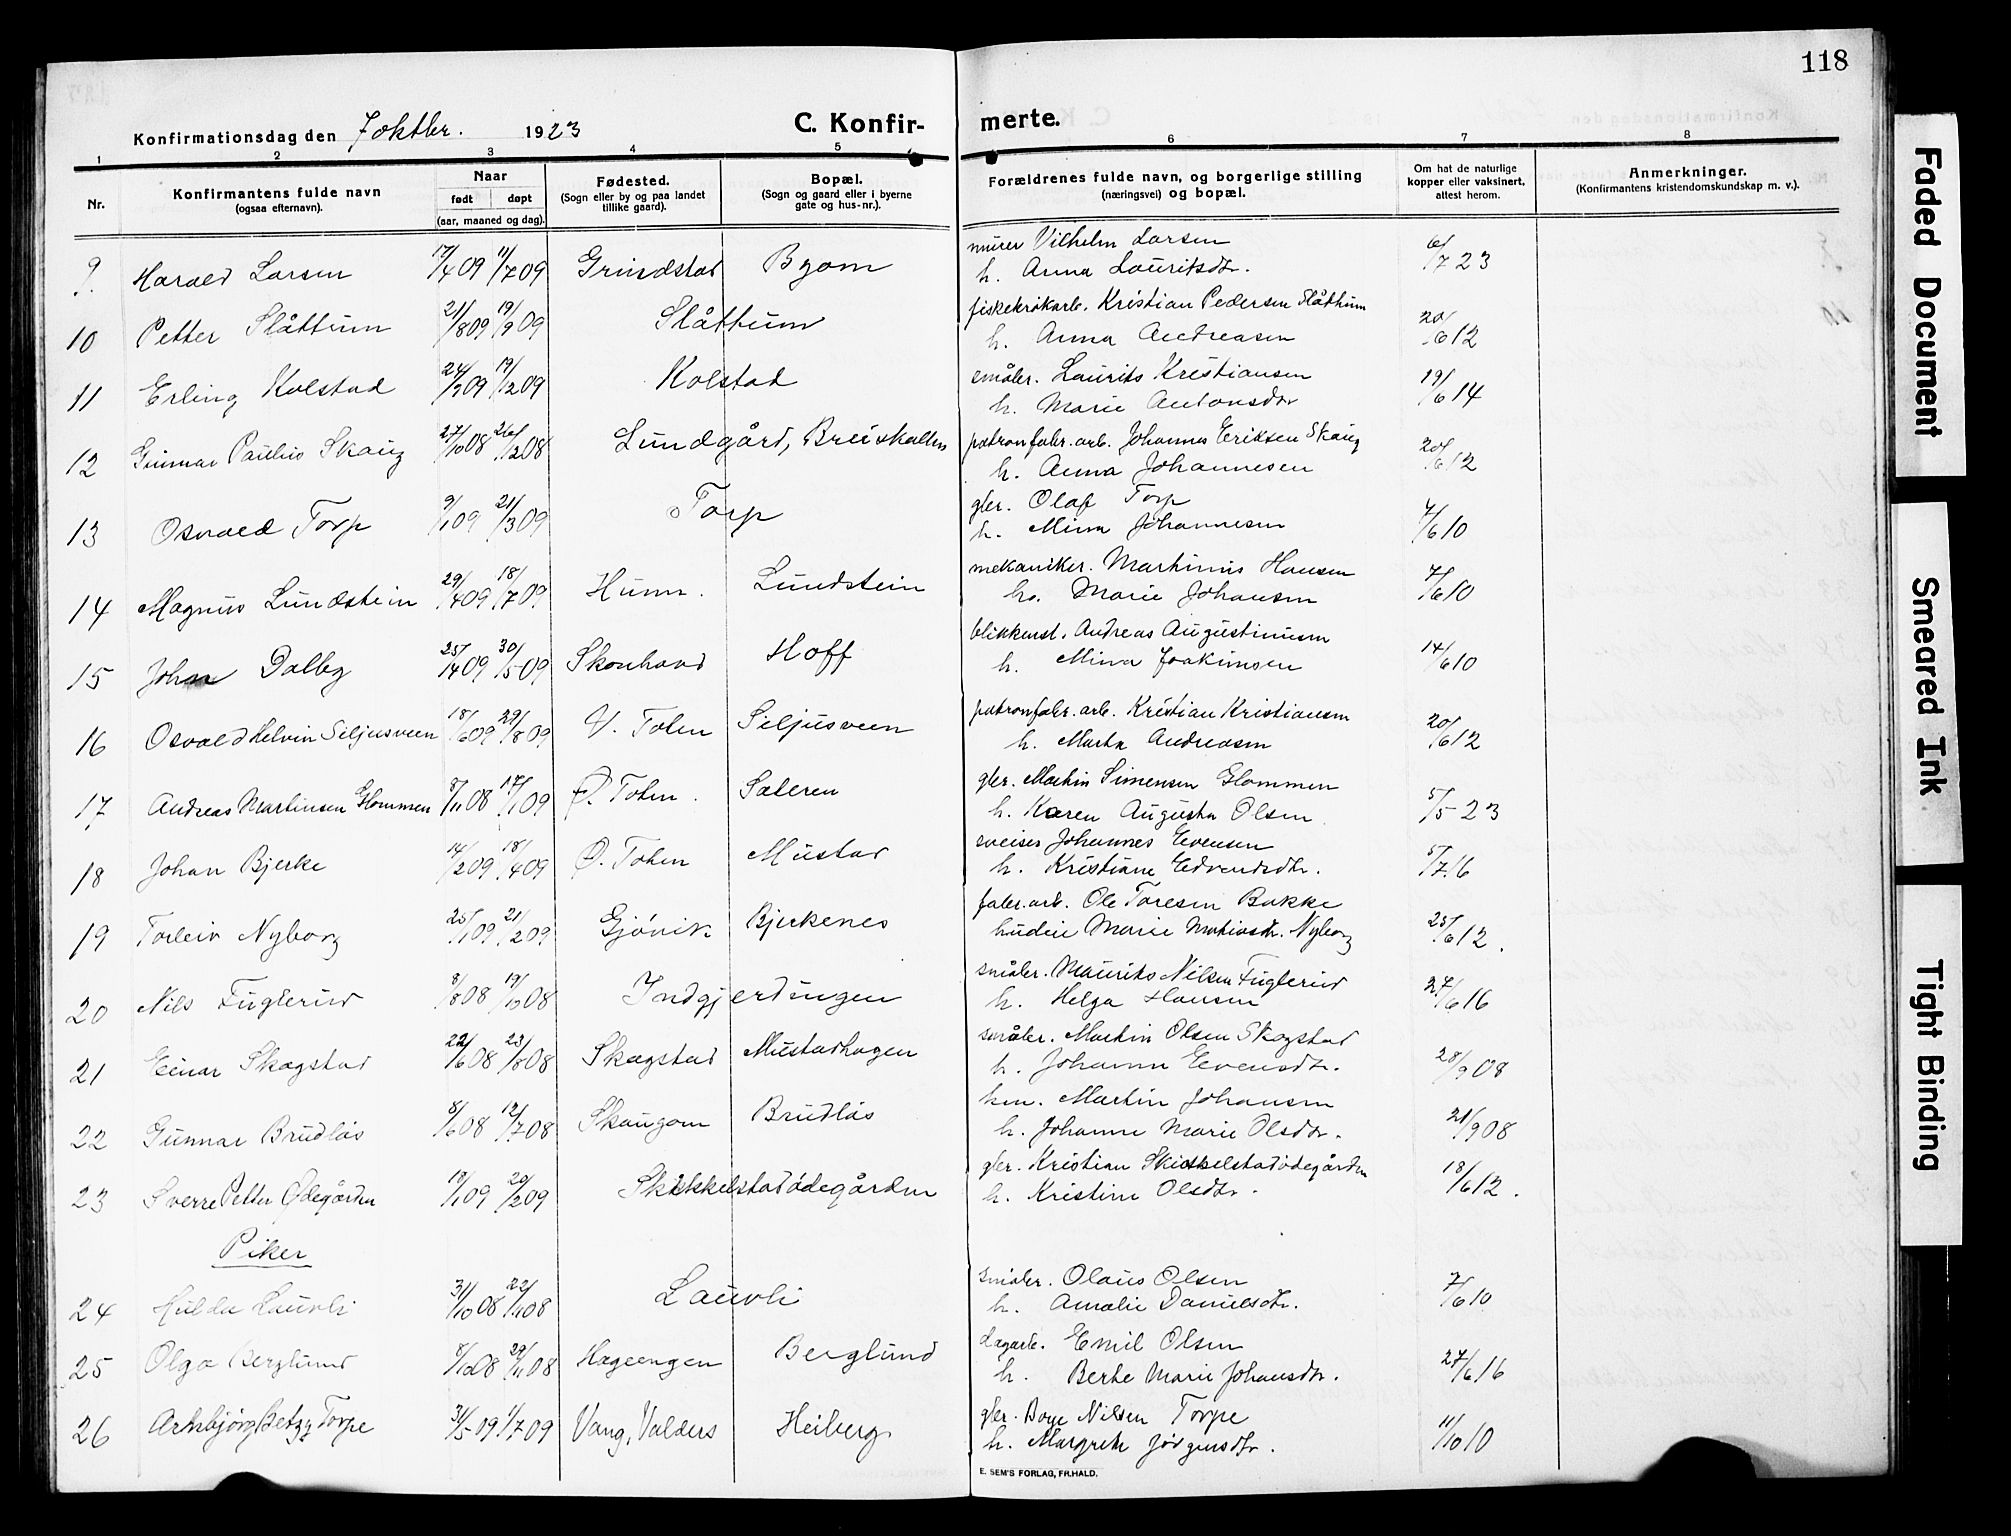 118
Konfirmationsdag den 7 oktbr. 1923
C. Konfirmerte.
1 2 3 4 5 6 7 8
Nr.
Konfirmantens fulde navn (ogsaa efternavn).
Naar født døpt (aar, maaned og dag).
Fødested. (Sogn eller by og paa landet tillike gaard).
Bopæl. (Sogn og gaard eller i byerne gate og hus-nr.).
Forældrenes fulde navn, og borgerlige stilling (næringsvei) og bopæl.
Om hat de naturlige kopper eller vaksinert, attest herom.
Anmerkninger. (Konfirmantens kristendomskundskap m. v.).
9. Harald Larsen 17/4 09 11/7 09 Grindstad Byom murer Vilhelm Larsen 6/7 23
h. Anna Lauritsdtr.
10 Petter Slåttum 21/8 09 19/9 09 Slåttum fiskekrokarb. Kristian Pedersen Slåttum 20/6 12
h. Anna Andreasen
11 Erling Kolstad 24/9 09 19/12 09 Kolstad småbr. Laurits Kristiansen 19/6 14
h. Marie Antonsdtr
12 Gunnar Paulus Skaug 27/10 08 26/12 08 Lundgård, Breiskallen patronfabr. arb. Johannes Eriksen Skaug 20/6 12
h. Anna Johannesen
13 Osvald Torp 9/1 09 21/3 09 Torp gbr. Olaf Torp 7/6 10
h. Mina Johannesen
14 Magnus Lundstein 29/4 09 18/7 09 Hunn. Lundstein mekaniker. Martinius Hansen 7/6 10
h. Marie Johansen
15 Johan Dalby 25/4 09 30/5 09 Skonhovd Hoff blikkensl. Andreas Augustinusen 14/6 10
h. Mina Joakimsen
16 Osvald Helvin Siljusveen 18/6 09 29/8 09 V. Toten Siljusveen patronfabr. arb. Kristian Kristiansen 20/6 12
h. Marta Andreasen
17 Andreas Martinsen Glommen 8/11 08 17/1 09 Ø. Toten. Sateren gbr. Martin Simensen Glommen 5/5 23
h. Karen Augusta Olsen
18 Johan Bjerke 14/2 09 18/4 09 Ø. Toten Mustad sveiser Johannes Evensen 5/7 16
h. Kristiane Edvardsdtr.
19 Torleiv Nyborg 25/1 09 21/2 09 Gjövik Bjerkenes fabr. arb. Ole Toresen Bakke 25/6 12.
hudeie Marie Mathiasdtr. Nyborg
20 Nils Fuglerud 8/8 08 19/10 08 Indgjerdingen småbr. Maurits Nilsen Fuglerud 27/6 16
h. Helga Hansen
21 Einar Skogstad 22/6 08 23/8 08 Skogstad Mustadhagen småbr. Martin Olsen Skogstad 28/9 08
h. Johanne Evensdtr.
22 Gunnar Brudlås 8/6 08 12/7 08 Skaugom Brudlås hm. Martin Johansen 21/9 08
h. Johanne Marie Olsdtr.
23 Sverre Petter Ødegården 10/1 09 20/2 09 Skikkelstadödegården gbr. Kristian Skikkelstadödegården 18/6 12.
h. Kristine Olsdtr.
Piker
24 Hulda Lauvli 31/10 08 22/11 08 Lauvli småbr. Olaus Olsen 7/6 10
h. Amalie Danielsdtr.
25 Olga Berglund 8/10 08 29/11 08 Hageengen Berglund dagarb. Emil Olsen 27/6 16
h. Berte Marie Johansdtr.
26 Betzy Torpe 31/5 09 1/7 09 Vang, Valders Heiberg gbr. Boye Nilsen Torpe 11/10 10
h. Margrete Jörgensdtr.
E. SEM'S FORLAG, FR.HALD.
Faded Document
Smeared Ink
Tight Binding